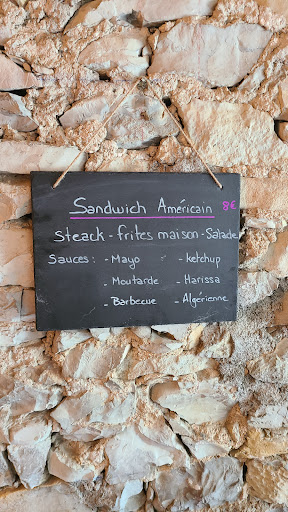 Sandwich Américain 8€
Steack - frites maison - Salade
Sauces : - Mayo - ketchup
- Moutarde - Harissa
- Barbecue - Algérienne